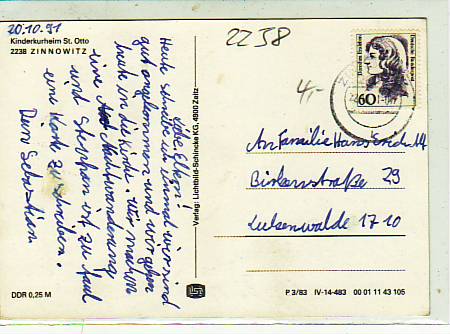 20.10.91
Kinderkurheim St. Otto
2238 ZINNOWITZ
2238
4,-
Liebe Eltern!
Heute schreibe ich einmal wir sind
gut angekommen und wir gehen
heute in die Kirche. Wir machen
eine Nachtwanderung
und Stephan ist zu faul
eine Karte zu schreiben.
Dein Sebastian
DDR 0,25 M
Verlag: Lichtbild-Schincke KG, 4900 Zeitz
Deutsche Bundespost
60
An Familie Hans
29
Luckenwalde 1710
P 3/83 IV-14-483 00 01 11 43 105